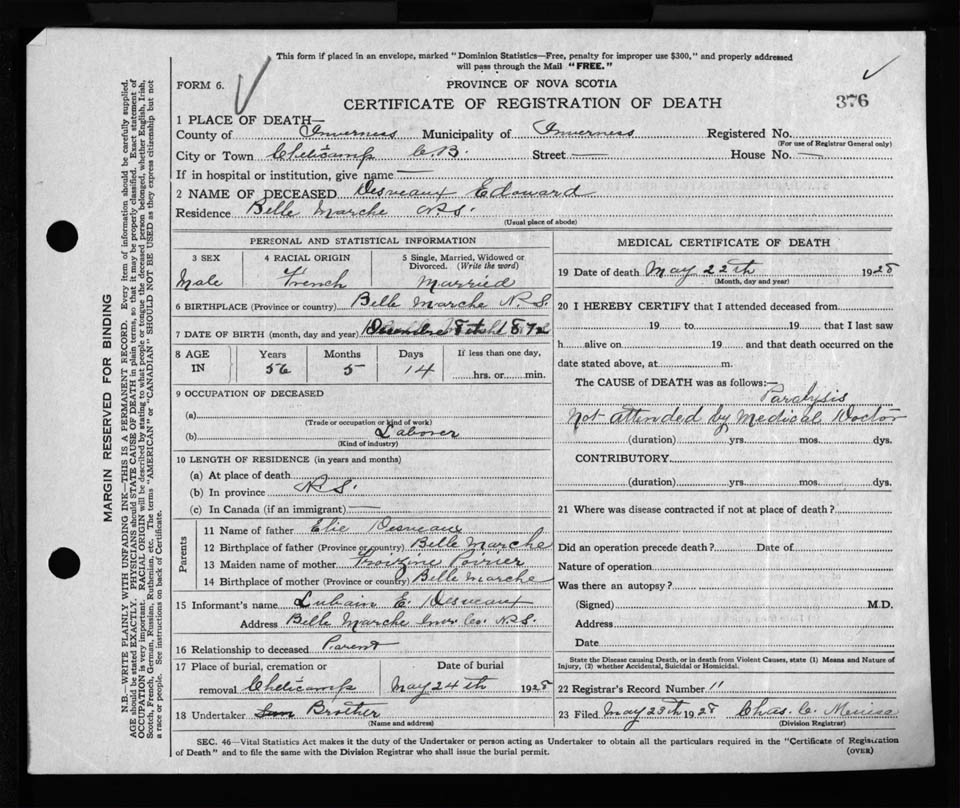 This form if placed in an envelope, marked "Dominion Statistics—Free, penalty for improper use $300," and properly addressed
will pass through the Mail "FREE."
FORM 6.
PROVINCE OF NOVA SCOTIA
CERTIFICATE OF REGISTRATION OF DEATH
376
1 PLACE OF DEATH—
County of Inverness Municipality of Inverness Registered No.
(For use of Registrar General only)
City or Town Cheticamp C.B. Street — House No. —
If in hospital or institution, give name —
2 NAME OF DECEASED Desveaux Edouard
Residence Belle Marche N.S.
(Usual place of abode)
PERSONAL AND STATISTICAL INFORMATION
3 SEX 4 RACIAL ORIGIN 5 Single, Married, Widowed or
Divorced. (Write the word)
Male French Married
6 BIRTHPLACE (Province or country) Belle Marche N.S.
7 DATE OF BIRTH (month, day and year)
8 AGE IN Years Months Days If less than one day,
56 5 14 hrs. or min.
9 OCCUPATION OF DECEASED
(a)
(Trade or occupation or kind of work)
(b) Laborer
(Kind of industry)
10 LENGTH OF RESIDENCE (in years and months)
(a) At place of death
(b) In province N.S.
(c) In Canada (if an immigrant) —
Parents
11 Name of father Elie Desveaux
12 Birthplace of father (Province or country) Belle Marche
13 Maiden name of mother Poirier
14 Birthplace of mother (Province or country) Belle Marche
15 Informant's name Lubain E. Desveaux
Address Belle Marche Inv. Co. N.S.
16 Relationship to deceased Parent
17 Place of burial, cremation or Date of burial
removal Cheticamp May 24th 1928
18 Undertaker Brother
(Name and address)
MEDICAL CERTIFICATE OF DEATH
19 Date of death May 22th 1928
(Month, day and year)
20 I HEREBY CERTIFY that I attended deceased from
19 to 19 that I last saw
h alive on 19 and that death occurred on the
date stated above, at m.
The CAUSE of DEATH was as follows:—
Paralysis
Not attended by Medical Doctor
(duration) yrs. mos. dys.
CONTRIBUTORY
(duration) yrs. mos. dys.
21 Where was disease contracted if not at place of death?
Did an operation precede death? Date of
Nature of operation
Was there an autopsy?
(Signed) M.D.
Address
Date
State the Disease causing Death, or in death from Violent Causes, state (1) Means and Nature of
Injury, (2) whether Accidental, Suicidal or Homicidal.
22 Registrar's Record Number 11
23 Filed May 23th 1928 Chas. C.
(Division Registrar)
SEC. 46—Vital Statistics Act makes it the duty of the Undertaker or person acting as Undertaker to obtain all the particulars required in the "Certificate of Registration
of Death" and to file the same with the Division Registrar who shall issue the burial permit.
(OVER)
MARGIN RESERVED FOR BINDING
N.B.—WRITE PLAINLY WITH UNFADING INK—THIS IS A PERMANENT RECORD. Every item of information should be carefully supplied.
AGE should be stated EXACTLY. PHYSICIANS should STATE CAUSE OF DEATH in plain terms, so that it may be properly classified. Exact statement of
OCCUPATION is very important. RACIAL ORIGIN will be described by stating to what people or tongue the deceased person belonged, whether English, Irish,
Scotch, French, German, Russian, Ruthenian, etc. The terms "AMERICAN" or "CANADIAN" SHOULD NOT BE USED as they express citizenship but not
a race or people. See instructions on back of Certificate.